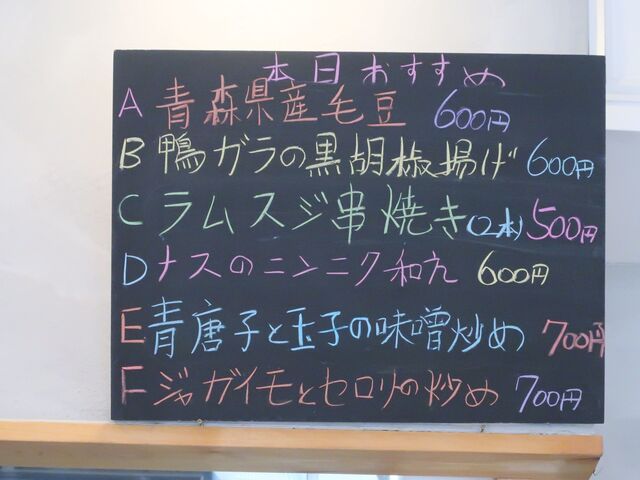 本日おすすめ
A 青森県産毛豆 600円
B 鴨ガラの黒胡椒揚げ 600円
C ラムスジ串焼き(2本) 500円
D ナスのニンニク和え 600円
E 青唐子と玉子の味噌炒め 700円
F ジャガイモとセロリの炒め 700円